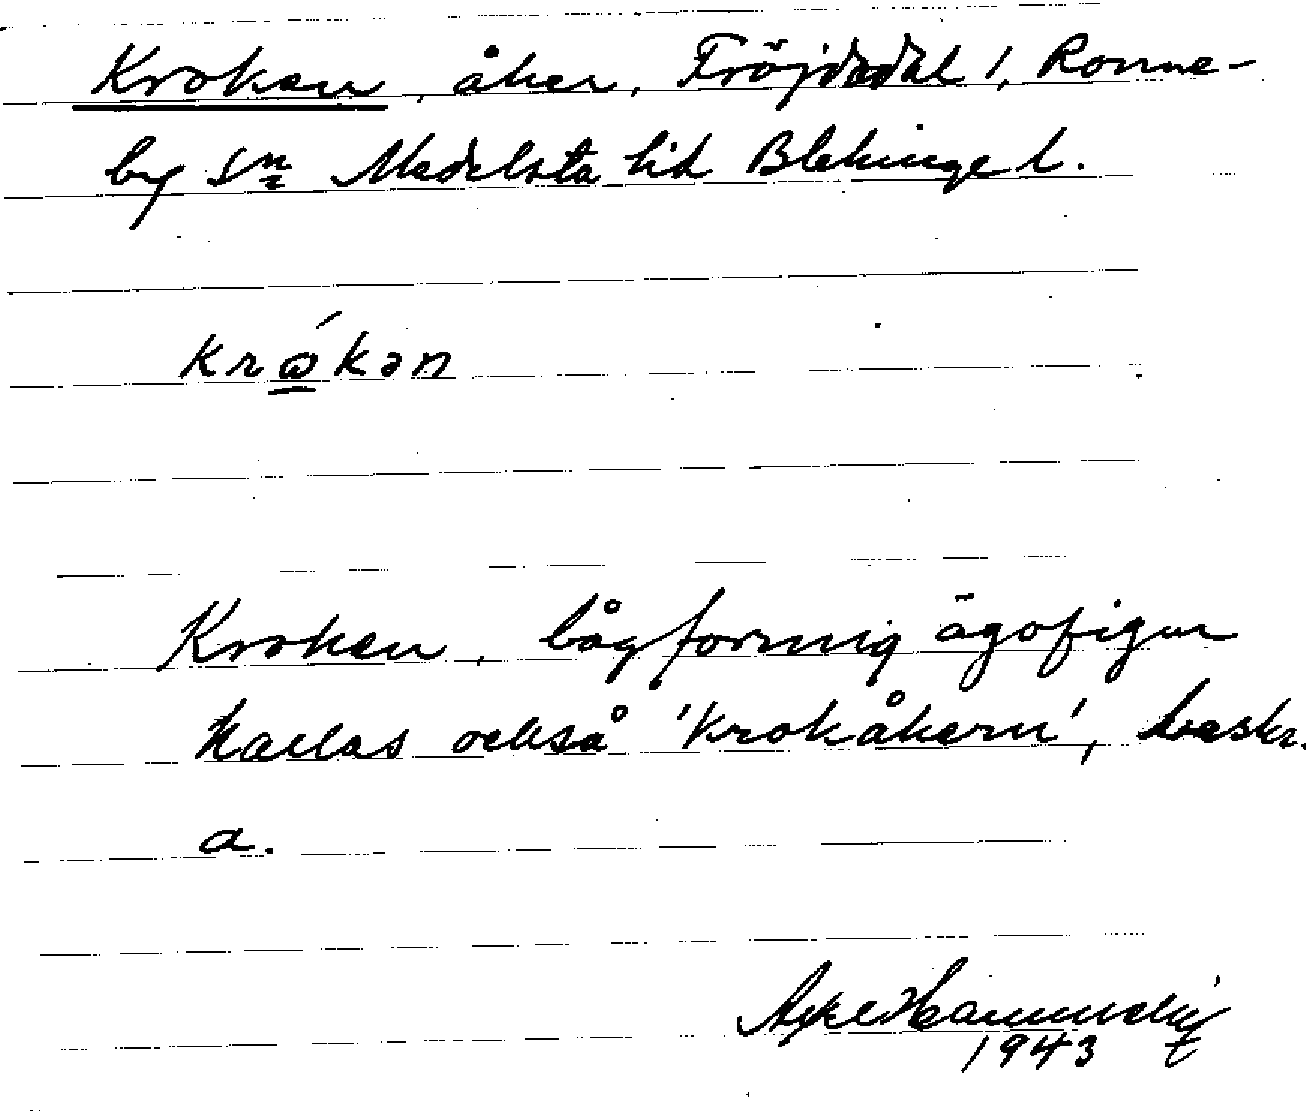 Kroken, åker, Fröjdadal 1, Ronne-
by sn Medelsta hd Blekinge l.
krώkən
Kroken, bågformig ägofigur
Kallas också 'Krokåkern', beskr.
a.
1943